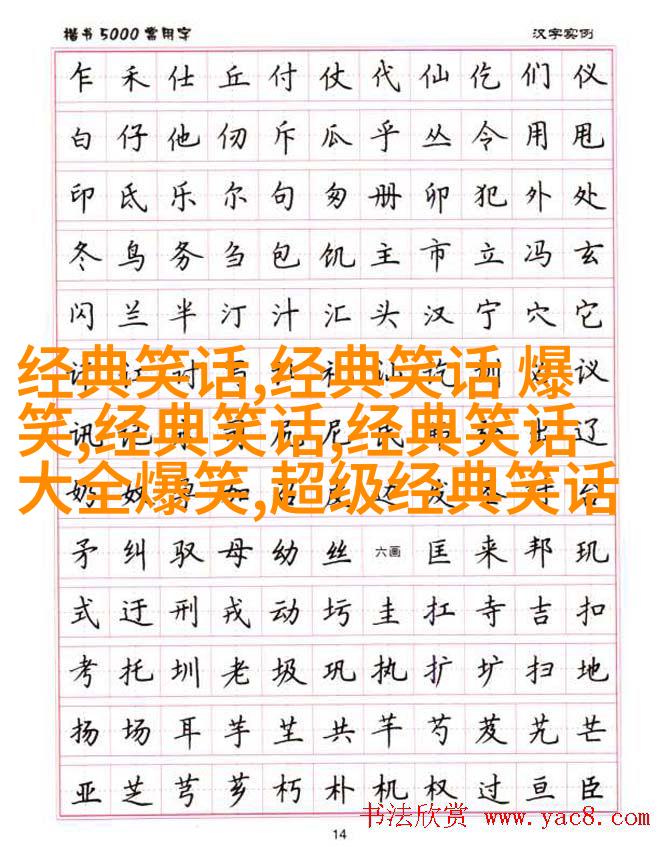 楷书5000常用字 汉字实例
乍 禾 仕 丘 付 仗 代 仙 仡 们 仪
白 仔 他 仞 斥 瓜 乎 丛 令 用 甩
印 氐 乐 尔 句 匆 册 卯 犯 外 处
冬 鸟 务 刍 包 饥 主 市 立 冯 玄
闪 兰 半 汀 汁 汇 头 汉 宁 穴 它
经典笑话,经典笑话 爆
议
笑,经典笑话,经典笑话
讯 辽
大全爆笑,超级经典笑话
矛 纠 驭 母 幼 丝 六画 匡 来 邦 玑
式 迂 刑 戎 动 圬 圭 扛 寺 吉 扣
考 托 圳 老 圾 巩 执 扩 圹 扫 地
扬 场 耳 芋 芏 共 芊 芍 芨 艽 芒
亚 芝 芎 芗 朽 朴 机 权 过 亘 臣
书法欣赏 www.yac8.com
14